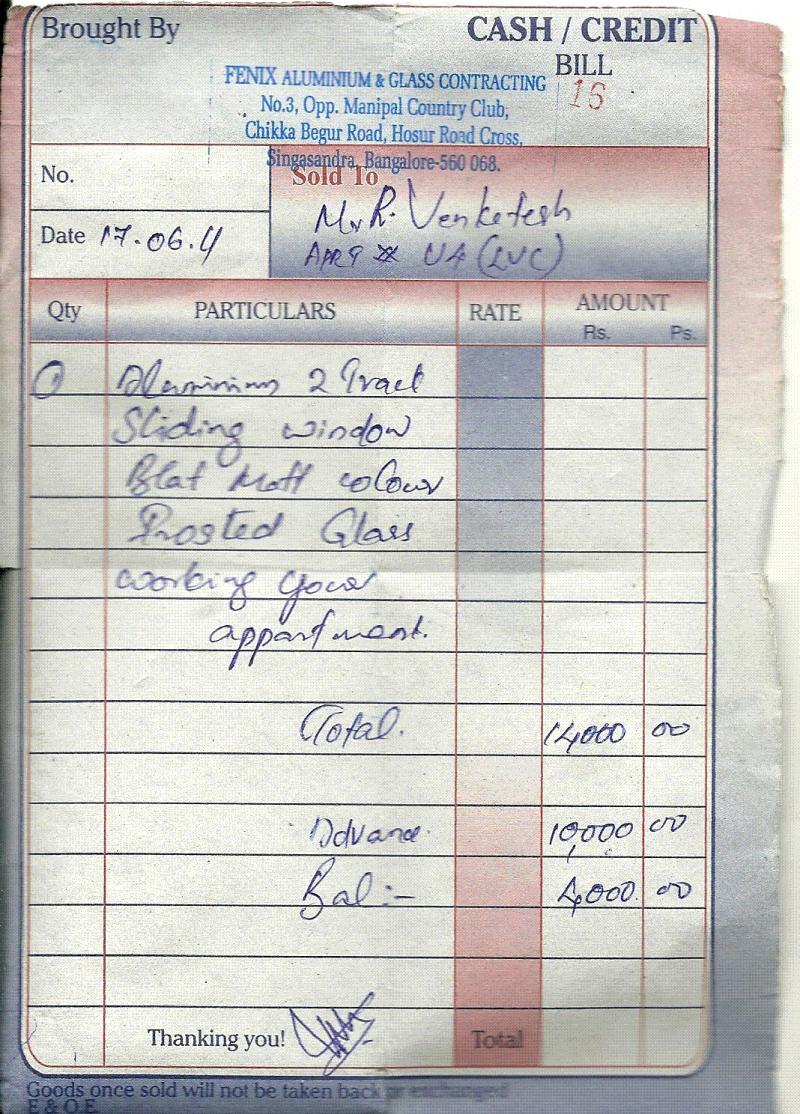 Brought By
CASH / CREDIT
BILL
FENIX ALUMINIUM & GLASS CONTRACTING
No.3, Opp. Manipal Country Club,
Chikka Begur Road, Hosur Road Cross,
Singasandra, Bangalore-560 068.
16
No.
Sold To
Mr R. Venketesh
Date 17.06.11
Qty PARTICULARS RATE AMOUNT
Rs. Ps.
1 Aluminium 2 Track
Sliding window
Matt colour
Frosted Glass
working your
appartment.
Total. 14,000 00
Advance. 10,000 00
Bal:- 4,000 00
Thanking you! Total
Goods once sold will not be taken back or exchanged
E & O.E